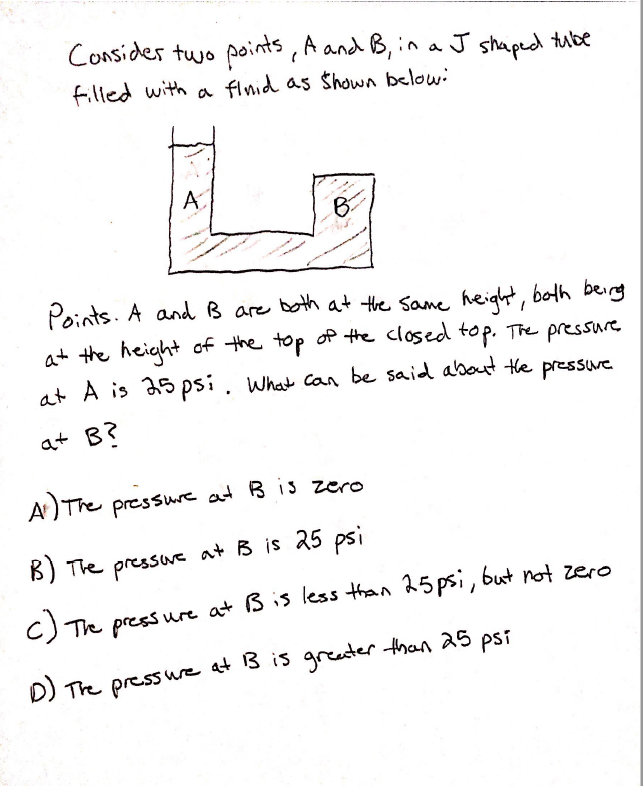 Consider two points, A and B, in a J shaped tube
filled with a fluid as shown below:
A
B
Points. A and B are both at the same height, both being
at the height of the top of the closed top. The pressure
at A is 25 psi. What can be said about the pressure
at B?
A) The pressure at B is zero
B) The pressure at B is 25 psi
C) The pressure at B is less than 25 psi, but not zero
D) The pressure at B is greater than 25 psi